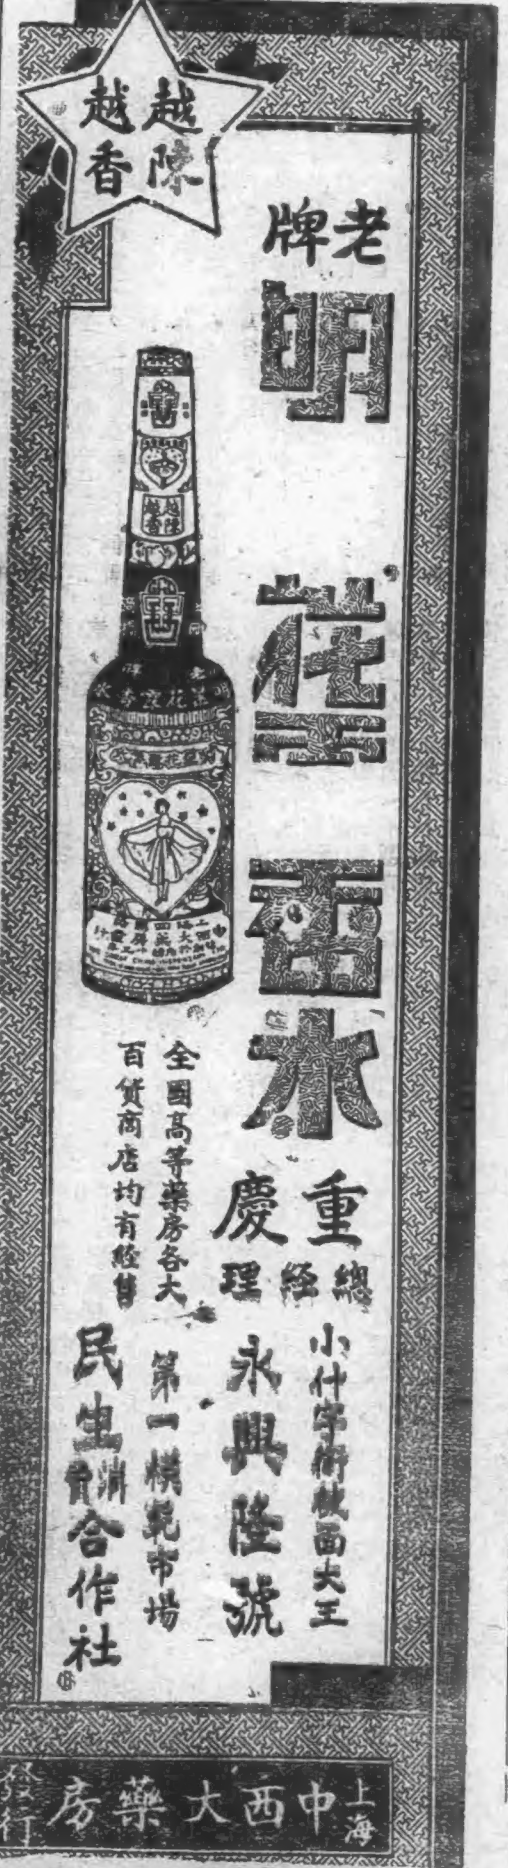 越陳
越香
老牌
明花香水
重慶
總經理
小什字街被面大王
永興隆號
全國高等藥房各大
百貨商店均有經售
第一模範市場
民生消費合作社
越陳
越香
上海中西大藥房發行